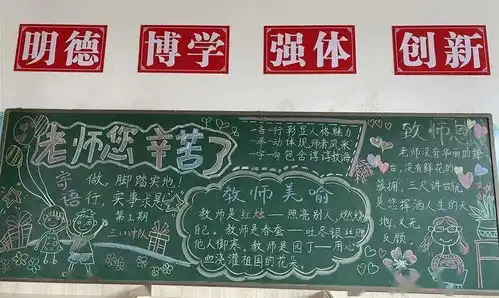 明德
博学
强体
创新
老师您辛苦了
寄语
做，脚踏实地！
行，实事求是！
第2期
三(2)中队
一言一行彰显人格魅力
一举一动体现师者风采
一字一句包含谆谆教诲
教师美喻
教师是红烛——照亮别人，燃烧
自己。教师是春蚕——吐尽银丝
他人御寒。教师是园丁——用心
血浇灌祖国的花朵。
致师恩
老师没有华丽的舞
台，没有鲜花的
簇拥，三尺讲台就
是您挥洒人生的天
地，义无
反顾。